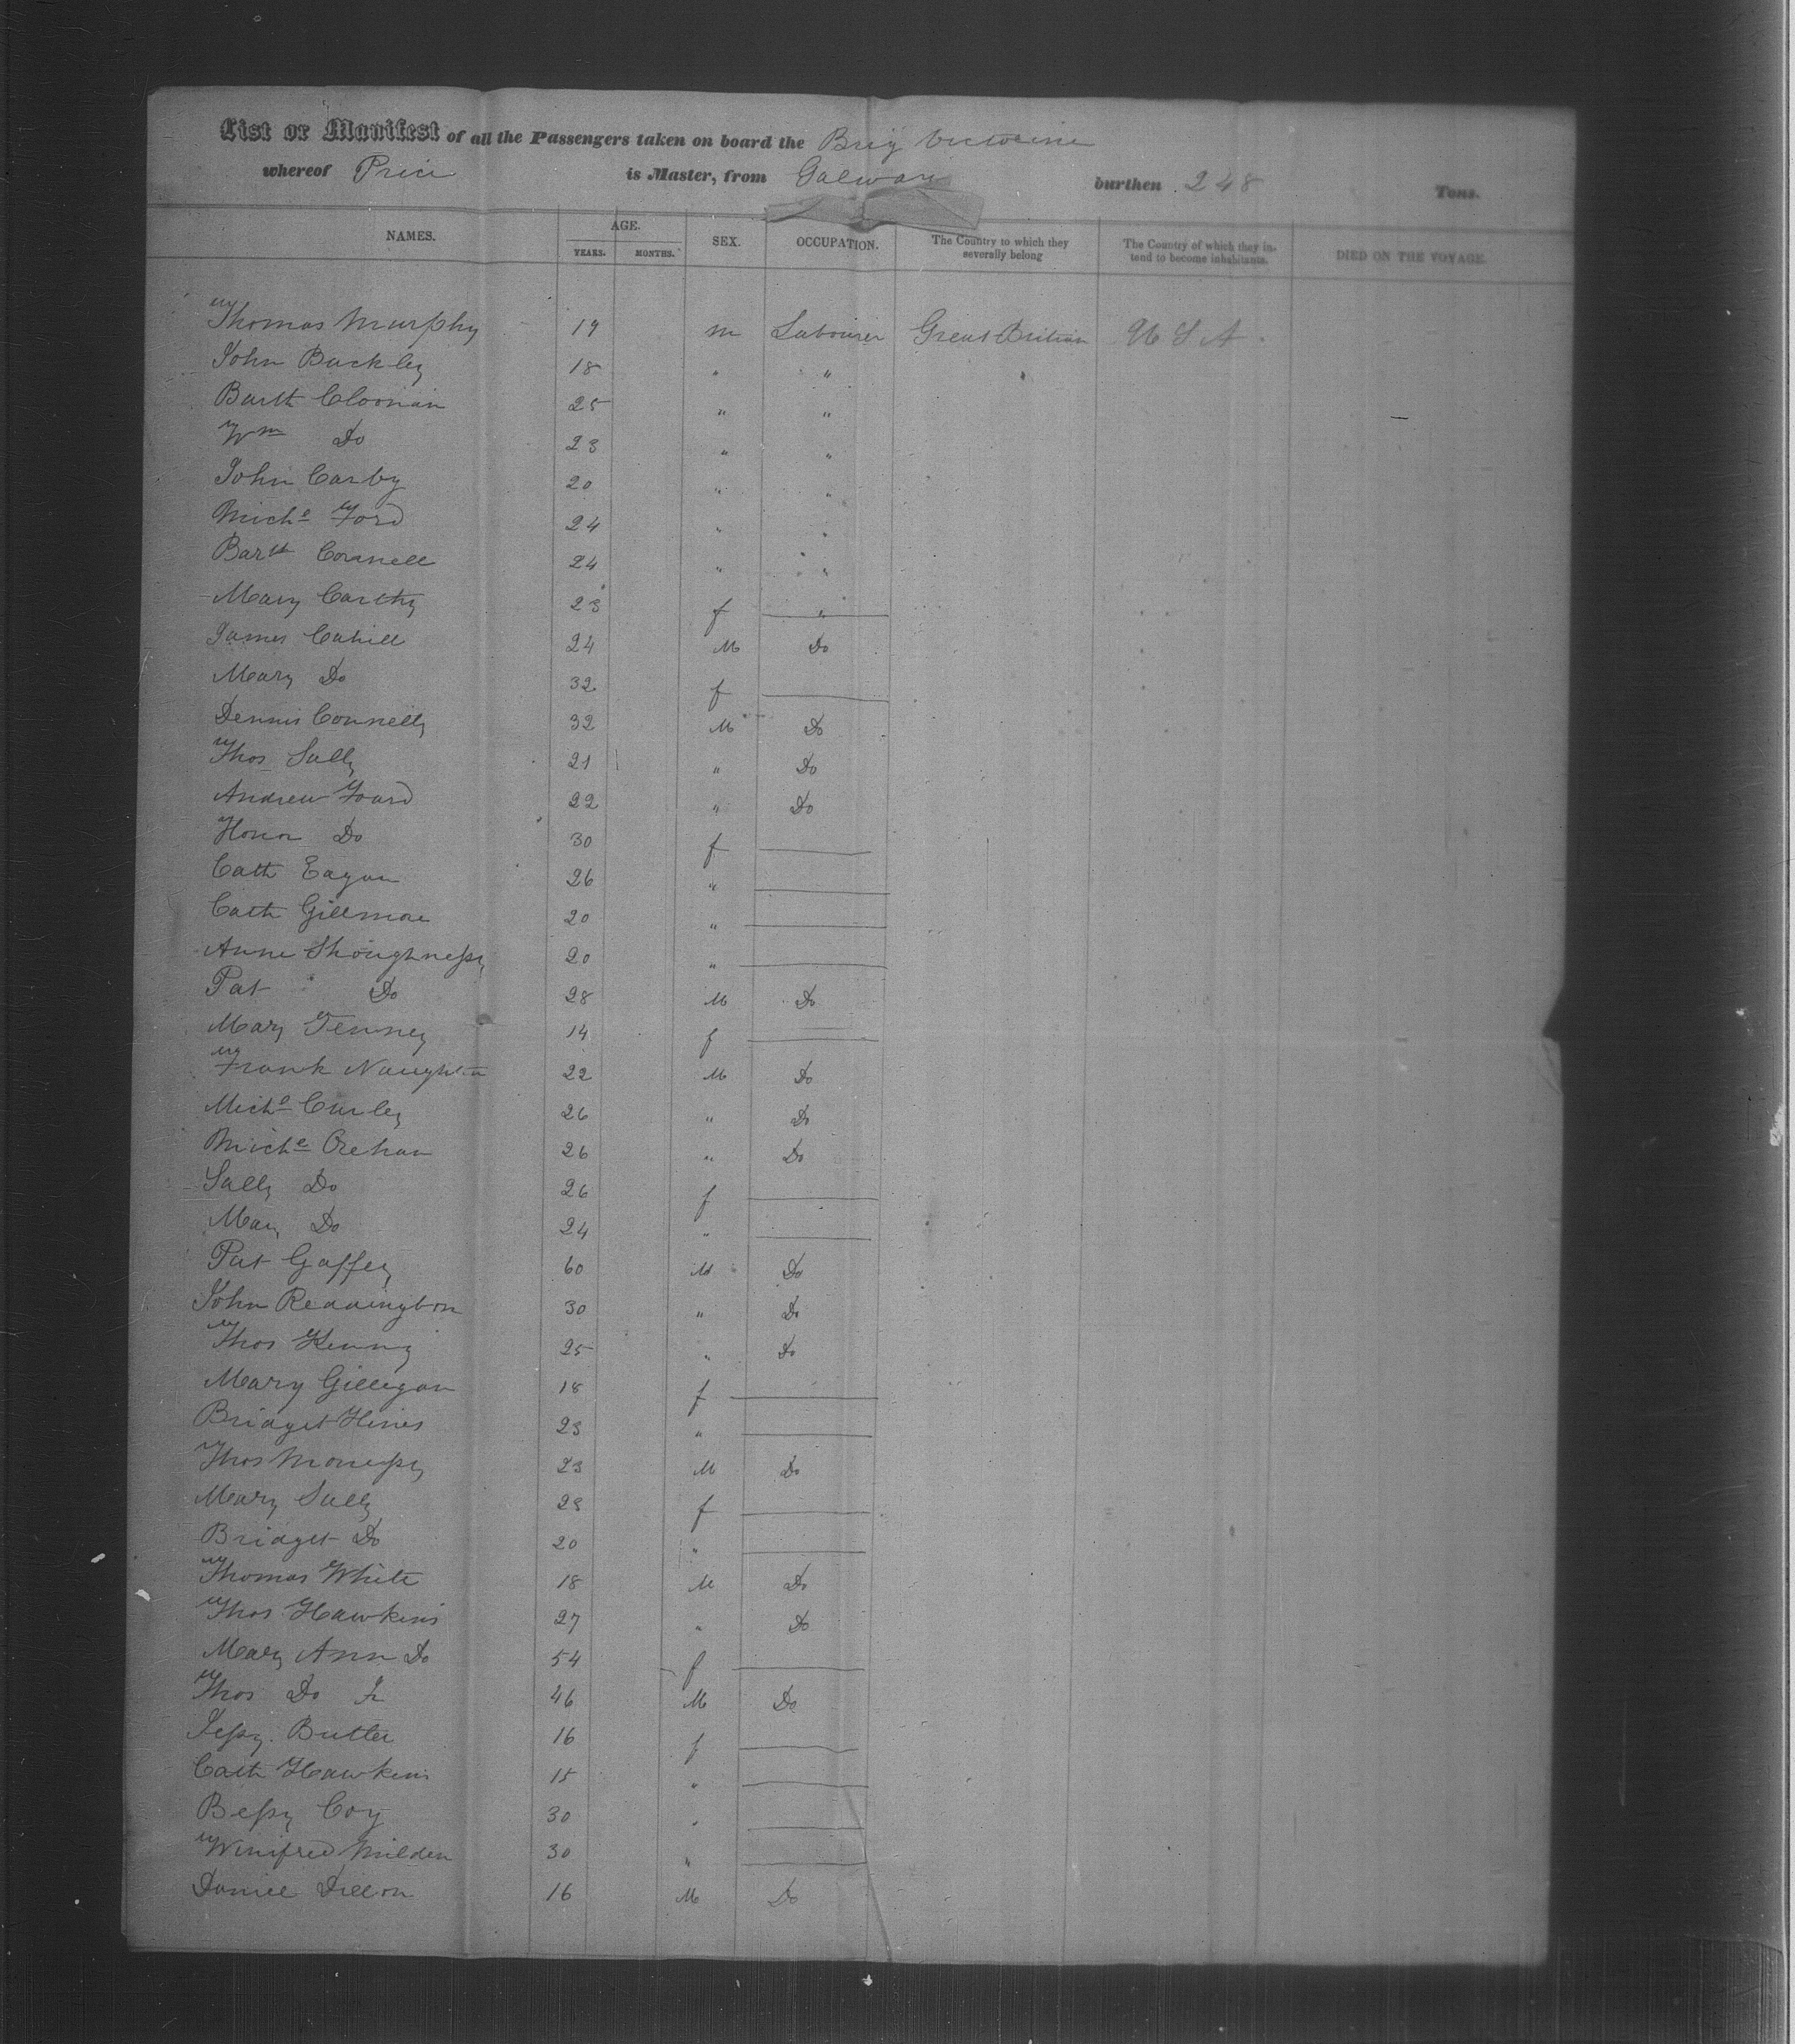 List or Manifest of all the Passengers taken on board the Brig Victorine
whereof Price is Master, from Galway burthen 248 Tons.
NAMES. AGE. YEARS. MONTHS. SEX. OCCUPATION. The Country to which they severally belong The Country of which they intend to become inhabitants. DIED ON THE VOYAGE.
Thomas Murphy 19 m Labourer Great Britian U S A
John Buckley 18 " "
Barth Cloonan 25 " "
Wm Do 23 " "
John Carby 20 " "
Miche Ford 24 " "
Barth Connell 24 " "
Mary Carthy 23 f "
James Cahill 24 M Do
Mary Do 32 f
Dennis Connelly 32 M Do
Thos Sally 21 " Do
Andrew Foard 22 " Do
Honor Do 30 f
Cath Eagan 26 "
Cath Gillmore 20 "
Anne Shoughnessy 20 "
Pat Do 28 M Do
Mary Fenney 14 f
Frank Naughton 22 M Do
Miche Curley 26 " Do
Miche Crehan 26 " Do
Sally Do 26 f
Mary Do 24 "
Pat Gaffey 60 M Do
John Reddington 30 " Do
Thos Kenny 25 " Do
Mary Gillegan 18 f
Bridget Hines 23 "
Thos 23 M Do
Mary Sally 23 f
Bridget Do 20 "
Thomas White 18 M Do
Thos Hawkins 27 " Do
Mary Ann Do 54 f
Thos Do Jr 46 M Do
Jessy Butler 16 f
Cath Hawkins 15 "
Bessy Coy 30 "
Winifred Milden 30 "
Daniel Dillon 16 M Do